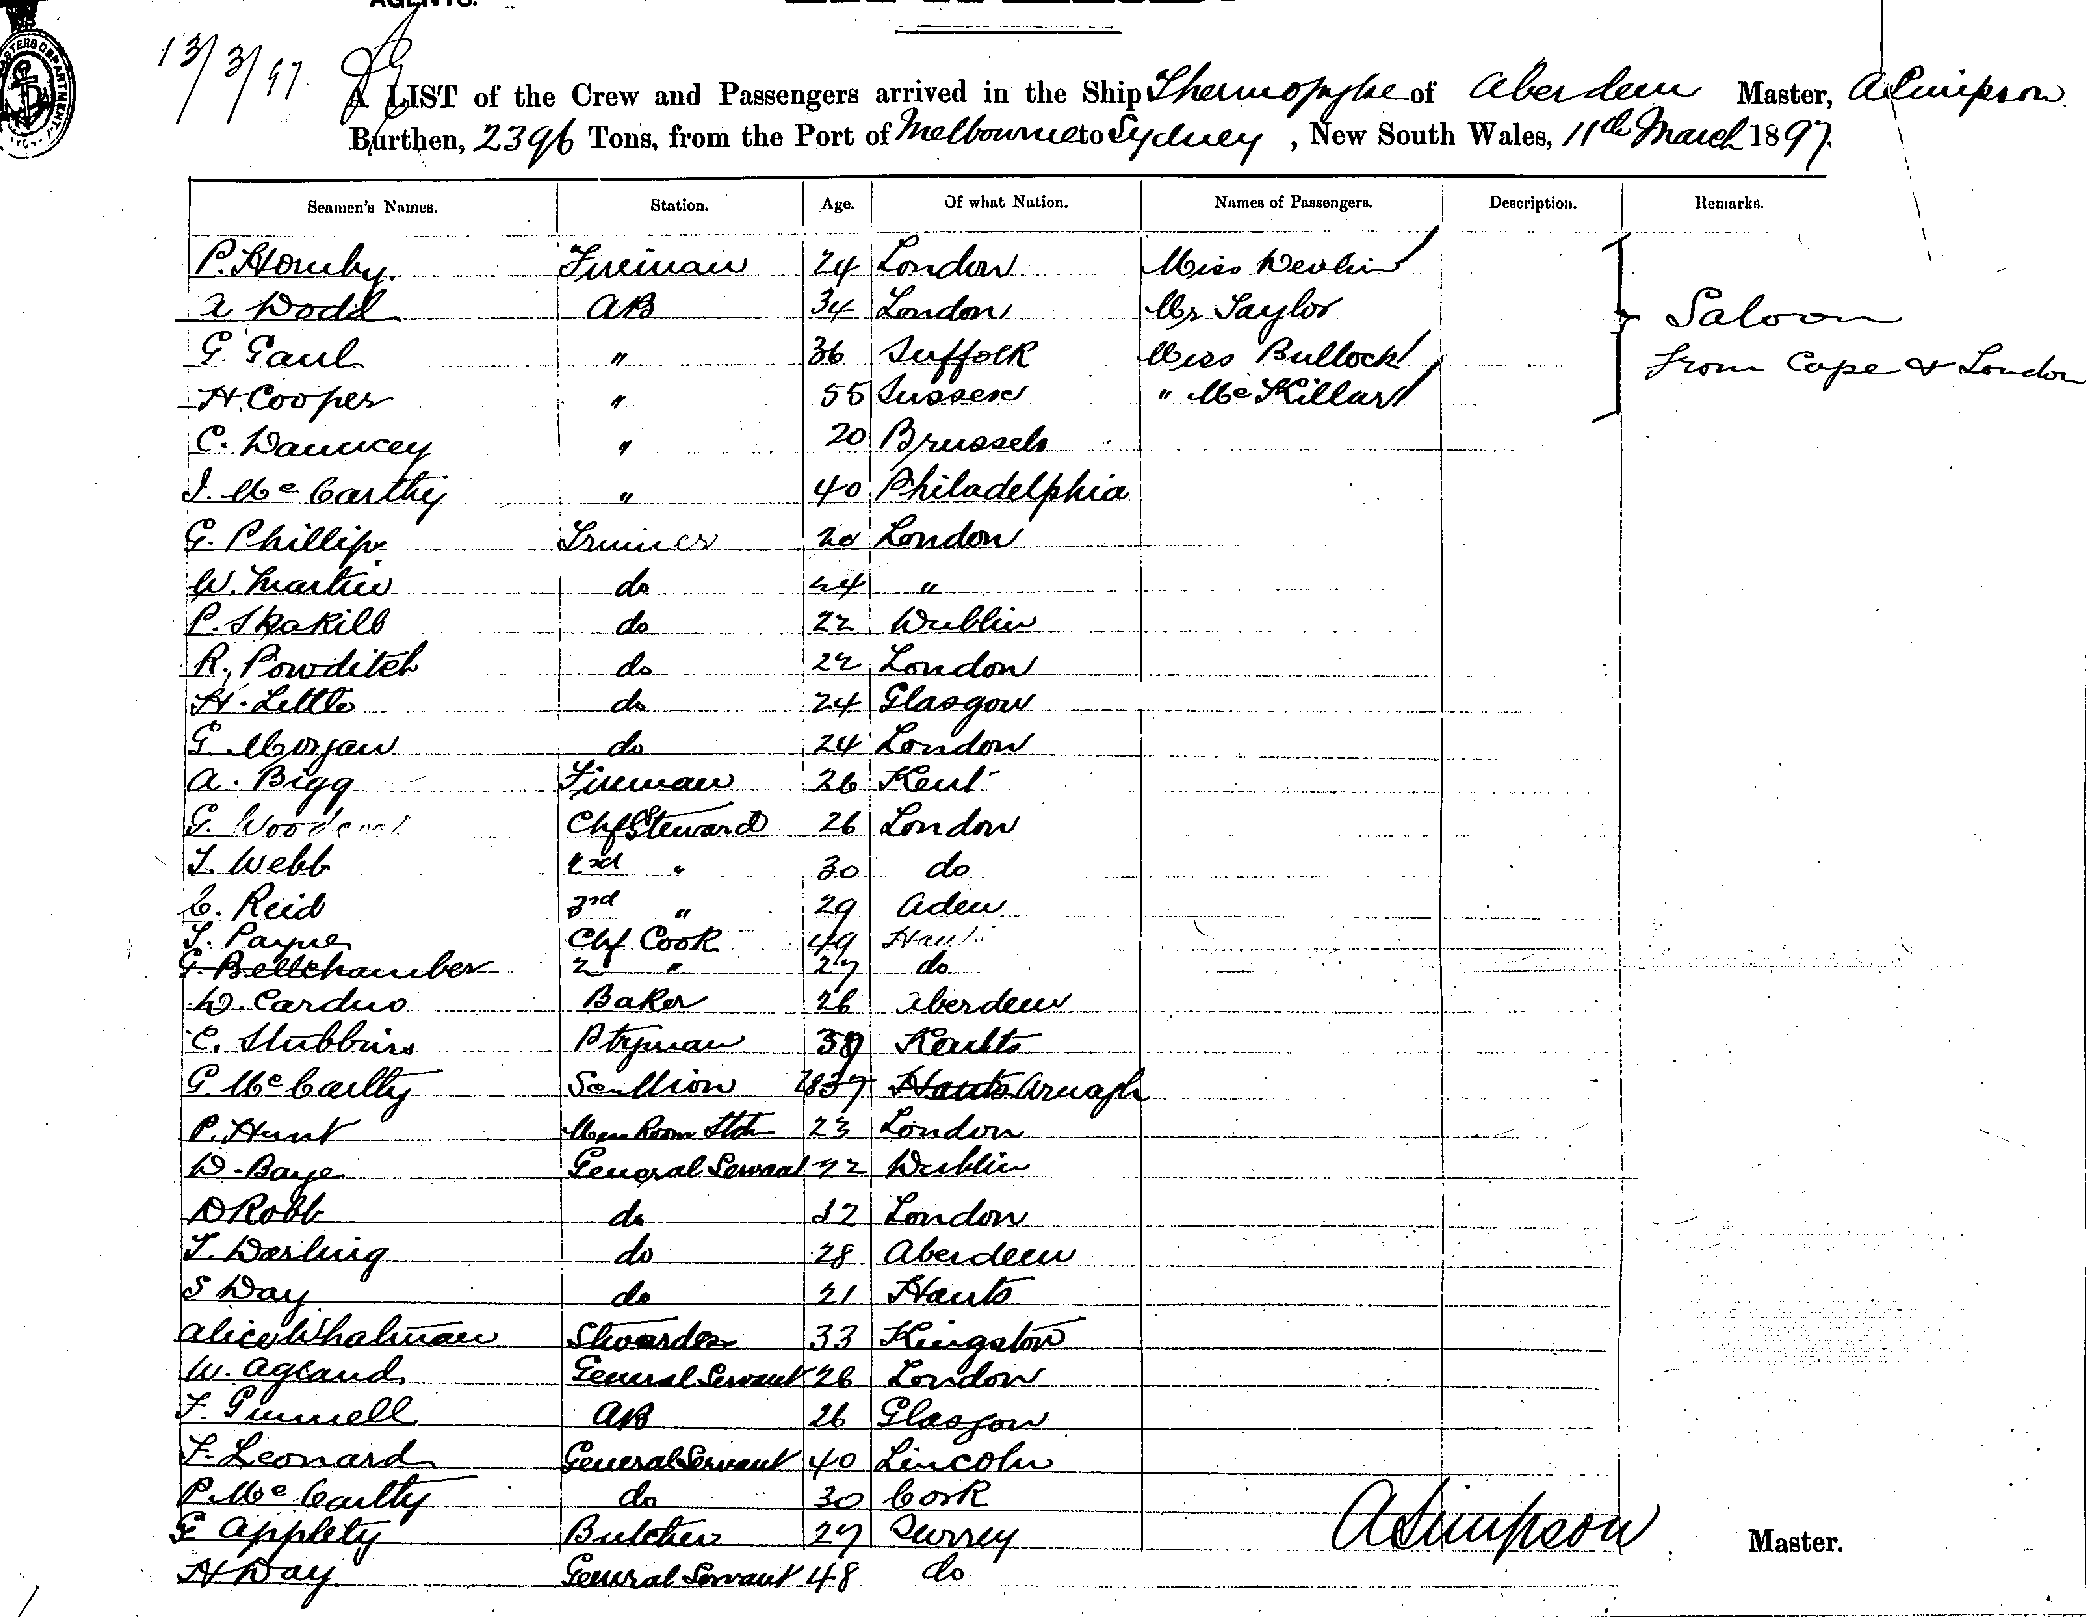 AGENTS.
13/3/97.
A LIST of the Crew and Passengers arrived in the Ship Thermopylae of Aberdeen Master, A Simpson
Burthen, 2396 Tons, from the Port of Melbourne to Sydney, New South Wales, 11th March 1897.
Seamen's Names. Station. Age. Of what Nation. Names of Passengers. Description. Remarks.
P. Hornby. Fireman 24 London Miss Devlin
A Dodd AB 34 London Mr Taylor Saloon
G. Gaul " 36 Suffolk Miss Bullock from Cape & London
H. Cooper " 55 Sussex " McKillar
C. Dauncey " 20 Brussels
J. McCarthy " 40 Philadelphia
G. Phillips Trimer 20 London
W. Martin do 24 "
P. Skakill do 22 Dublin
R. Powditch do 22 London
H. Little do 24 Glasgow
G. Morgan do 24 London
A. Bigg Fireman 26 Kent
G. Chf Steward 26 London
T. Webb 2nd " 30 do
C. Reid 3rd " 29 Aden
T. Payne Chf Cook 49 Hants
G. Bellchamber 2 " 27 do
W. Carduo Baker 26 Aberdeen
C. Stubbins Ptryman
G. McCarthy Scullion Hants Armagh
P. Hunt Mess Room Std 23 London
D. Baye General Servant 22 Dublin
D Robb do London
T. Darling do 28 Aberdeen
S Day do 21 Hants
Alice Whalman Stwardess 33 Kingston
W. Agland General Servant 26 London
F. Pinnell AB 26 Glasgow
F. Leonard General Servant 40 Lincoln
P. McCarthy do 30 Cork
G Applety Butcher 27 Surrey
H Day General Servant 48 do
A Simpson Master.